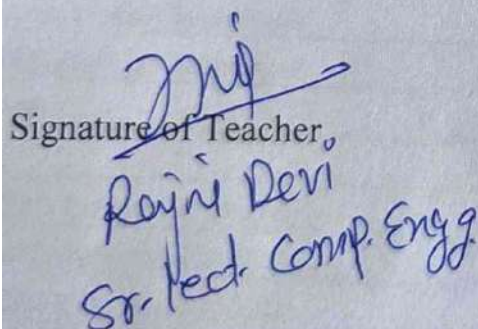 Signature of Teacher
Rajni Devi
Sr. Lect. Comp. Engg.